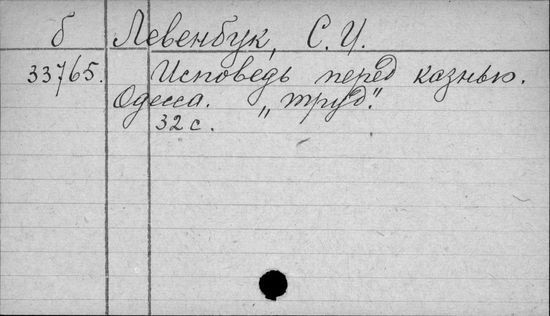 б Левенбук, С. У.
33765. Исповедь перед казнью.
Одесса. „Труд".
32 с.